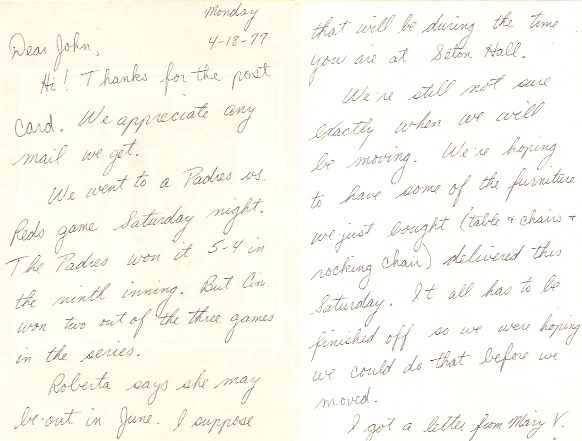 Monday
4-18-77
Dear John,
Hi! Thanks for the post
card. We appreciate any
mail we get.
We went to a Padres vs.
Reds game Saturday night.
The Padres won it 5-4 in
the ninth inning. But Cin.
won two out of the three games
in the series.
Roberta says she may
be out in June. I suppose
that will be during the time
you are at Seton Hall.
We're still not sure
exactly when we will
be moving. We're hoping
to have some of the furniture
we just bought (table + chairs +
rocking chair) delivered this
Saturday. It all has to be
finished off so we were hoping
we could do that before we
moved.
I got a letter from Mary V.